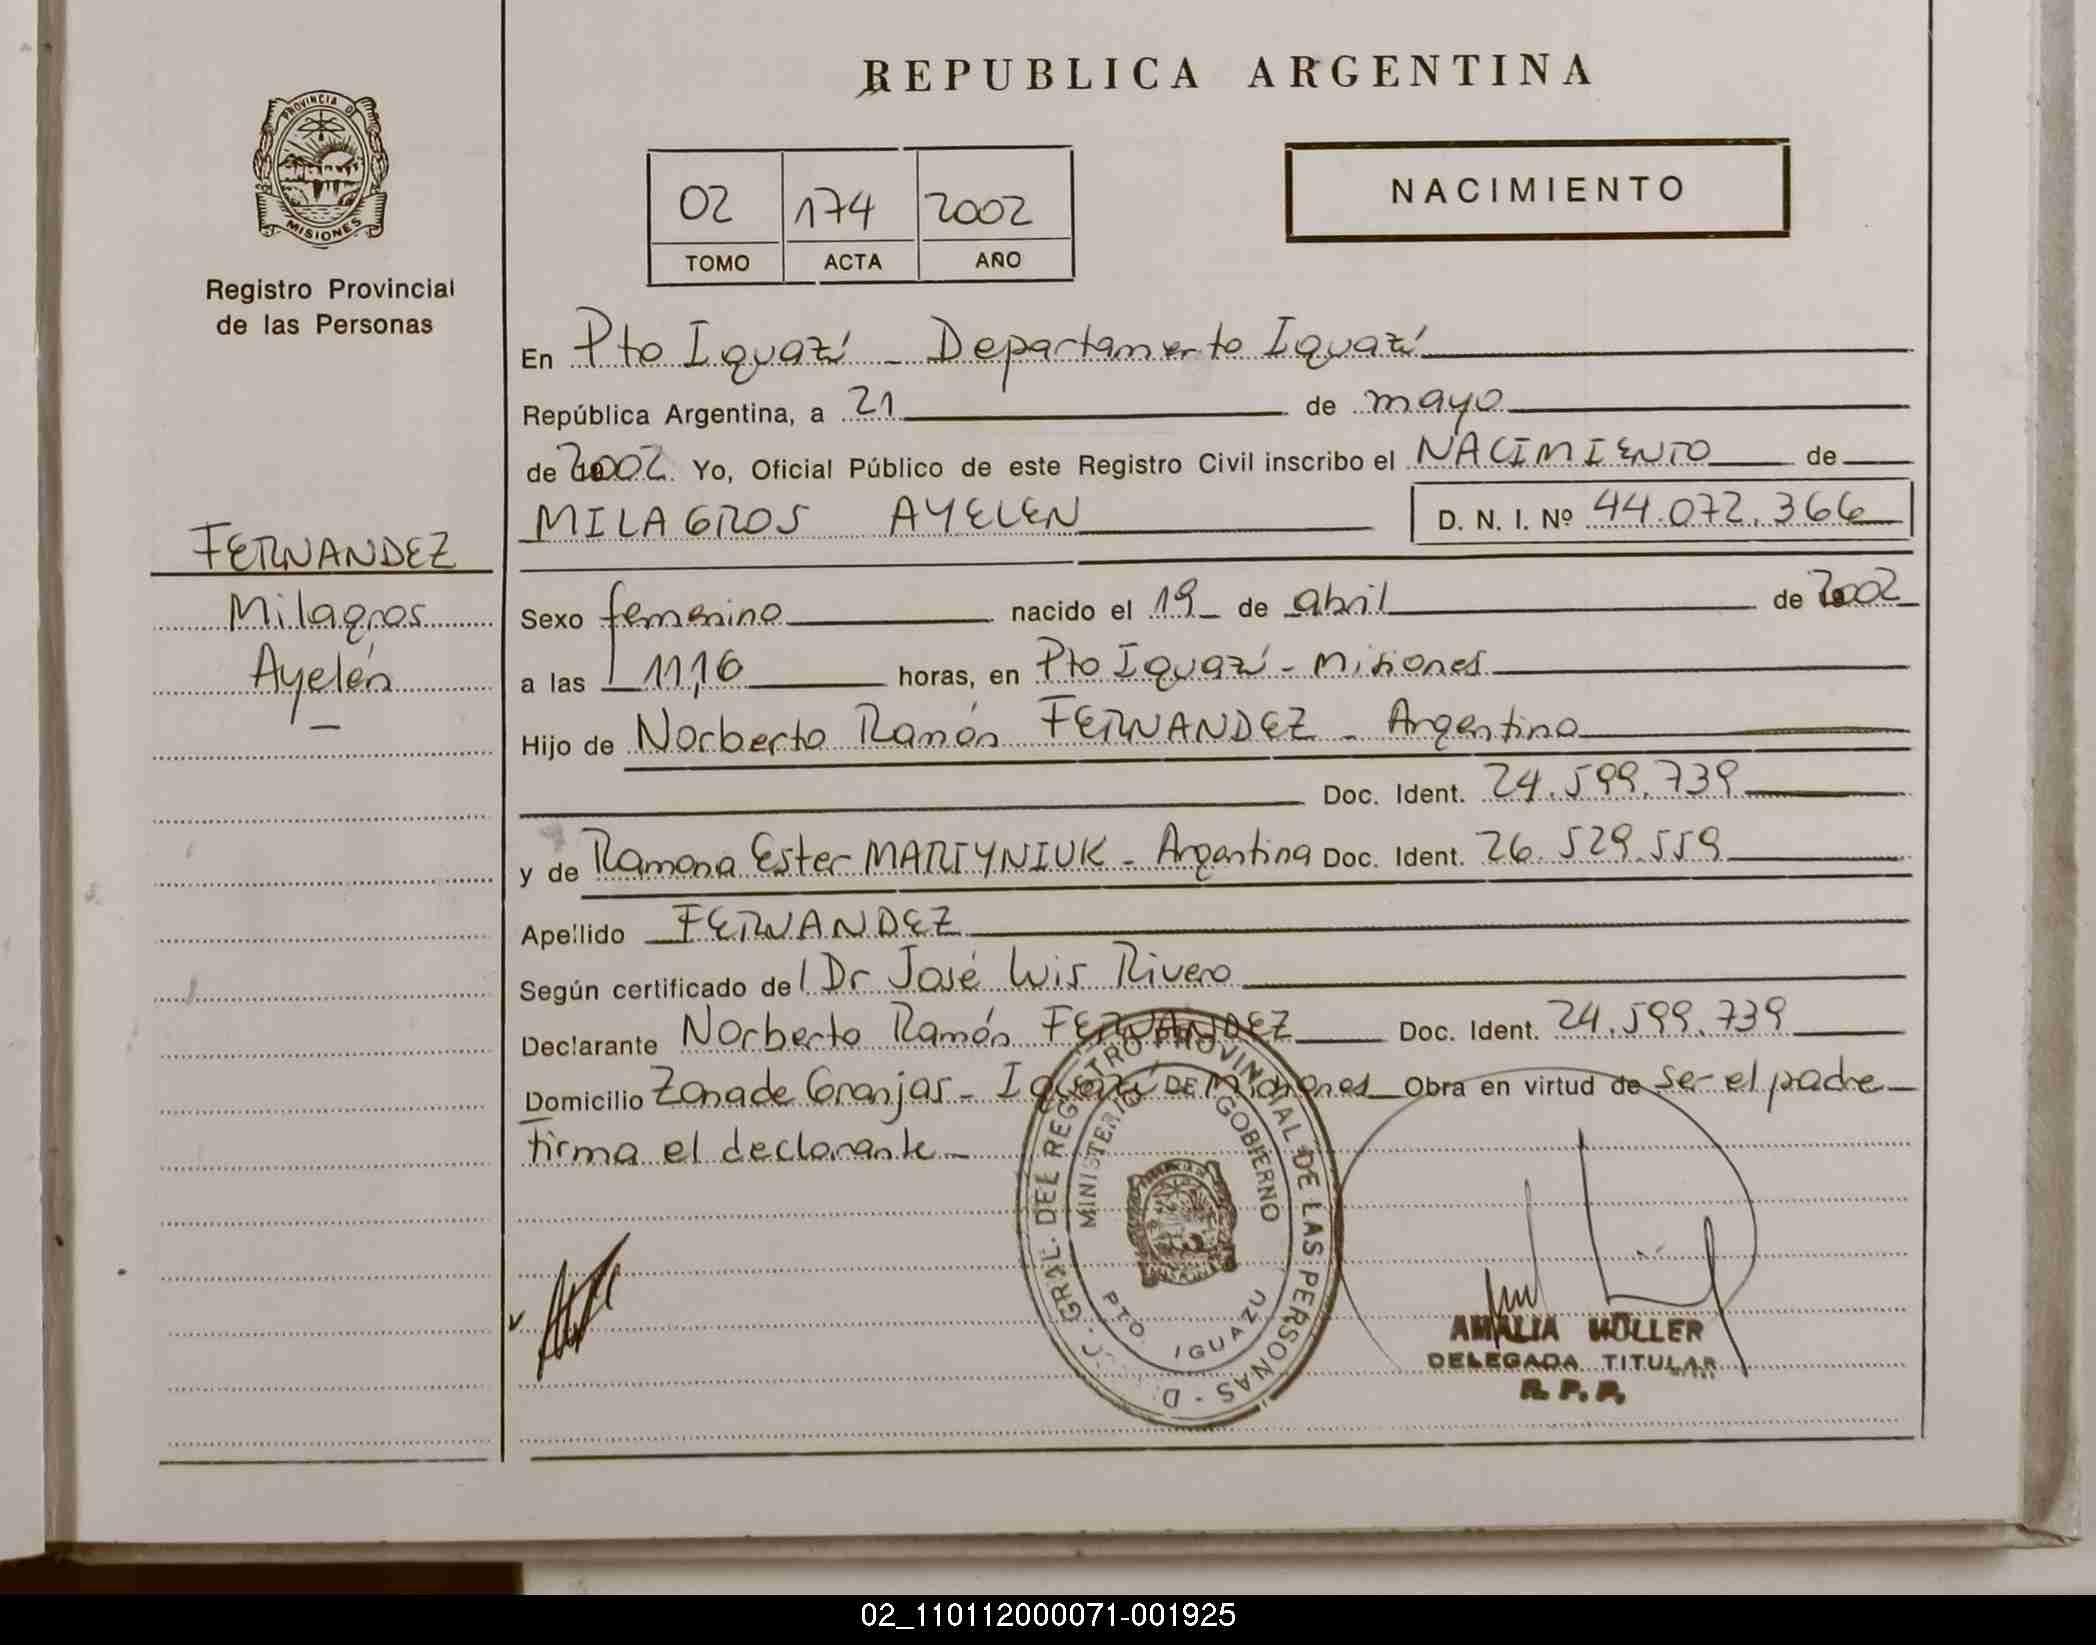 REPUBLICA ARGENTINA
PROVINCIA DE
MISIONES
Registro Provincial
de las Personas
02 174 2002
TOMO ACTA AÑO
NACIMIENTO
En Pto Iguazú - Departamento Iguazú
República Argentina, a 21 de mayo
de 2002 Yo, Oficial Público de este Registro Civil inscribo el NACIMIENTO de
MILAGROS AYELEN D. N. I. Nº 44.072.366
FERNANDEZ
Milagros
Ayelén
Sexo femenino nacido el 19 de abril de 2002
a las 11,16 horas, en Pto Iguazú - Misiones
Hijo de Norberto Ramón FERNANDEZ - Argentino
Doc. Ident. 24.599.739
y de Ramona Ester MARTYNIUK - Argentina Doc. Ident. 26.529.559
Apellido FERNANDEZ
Según certificado de Dr José Luis Rivero
Declarante Norberto Ramón FERNANDEZ Doc. Ident. 24.599.739
Domicilio Zona de Granjas - Iguazú Misiones Obra en virtud de ser el padre
firma el declarante -
GRAL. DEL REGISTRO PROVINCIAL DE LAS PERSONAS
MINISTERIO DE GOBIERNO
PTO IGUAZU
AMALIA MÜLLER
DELEGADA TITULAR
R. P. P.
02_110112000071-001925